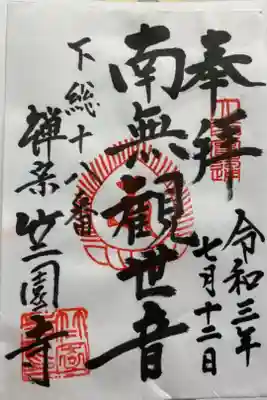 奉拝
令和三年
七月十二日
南無觀世音
下総十八番
禅宗竺園寺